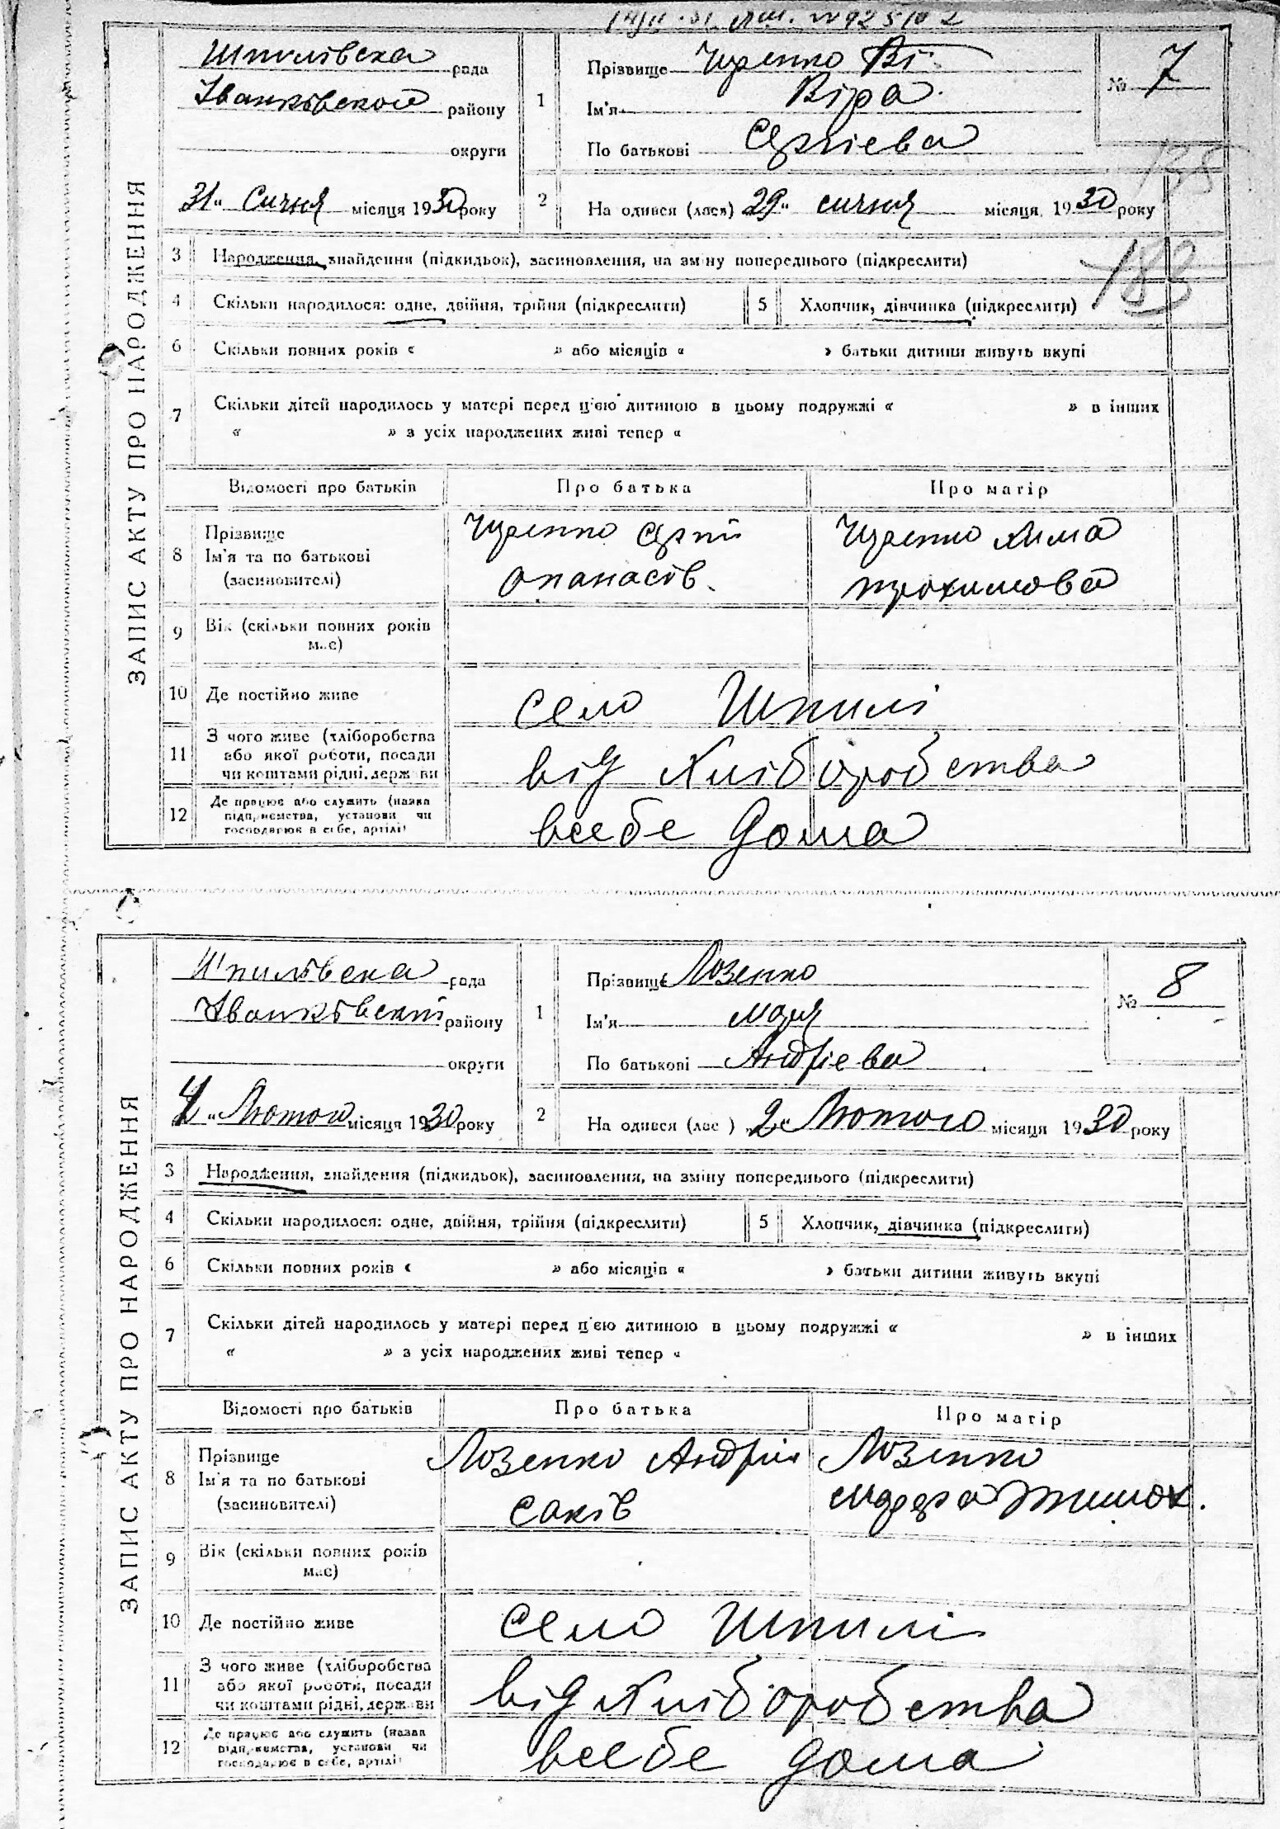 Шпилівська рада
Іванківського району
округи
31" Січня місяця 1930 року
1
Прізвище
Ім'я Віра
По батькові Сергієва
№ 7
2
На одився (лася) 29" січня місяця 1930 року
183
ЗАПИС АКТУ ПРО НАРОДЖЕННЯ
3 Народження, знайдення (підкидьок), засиновлення, на зміну попереднього (підкреслити)
4 Скільки народилося: одне, двійня, трійня (підкреслити)
5 Хлопчик, дівчинка (підкреслити)
6 Скільки повних років « » або місяців « » батьки дитини живуть вкупі
7 Скільки дітей народилось у матері перед ц'єю дитиною в цьому подружжі « » в інших
« » з усіх народжених живі тепер «
Відомості про батьків
Про батька
Про матір
8 Прізвище
Ім'я та по батькові
(засиновителі)
Сергій
Опанасів.
9 Вік (скільки повних років
має)
10 Де постійно живе
село Шпилі
11 З чого живе (хліборобства
або якої роботи, посади
чи коштами рідні, держави
від хліборобства
12 Де працює або служить (назва
підприємства, установи чи
господарює в себе, артілі)
всебе дома
Шпилівська рада
Іванківський району
округи
4" Лютого місяця 1930 року
1
Прізвище Лозенко
Ім'я Марія
По батькові Андрієва
№ 8
2
На одився (лас ) 2" Лютого місяця 1930 року
ЗАПИС АКТУ ПРО НАРОДЖЕННЯ
3 Народження, знайдення (підкидьок), засиновлення, на зміну попереднього (підкреслити)
4 Скільки народилося: одне, двійня, трійня (підкреслити)
5 Хлопчик, дівчинка (підкреслити)
6 Скільки повних років « » або місяців « » батьки дитини живуть вкупі
7 Скільки дітей народилось у матері перед ц'єю дитиною в цьому подружжі « » в інших
« » з усіх народжених живі тепер «
Відомості про батьків
Про батька
Про матір
8 Прізвище
Ім'я та по батькові
(засиновителі)
Лозенко Андрій
Саків
Лозенко
9 Вік (скільки повних років
має)
10 Де постійно живе
село Шпилі
11 З чого живе (хліборобства
або якої роботи, посади
чи коштами рідні, держави
від хліборобства
12 Де працює або служить (назва
підприємства, установи чи
господарює в себе, артілі)
всебе дома